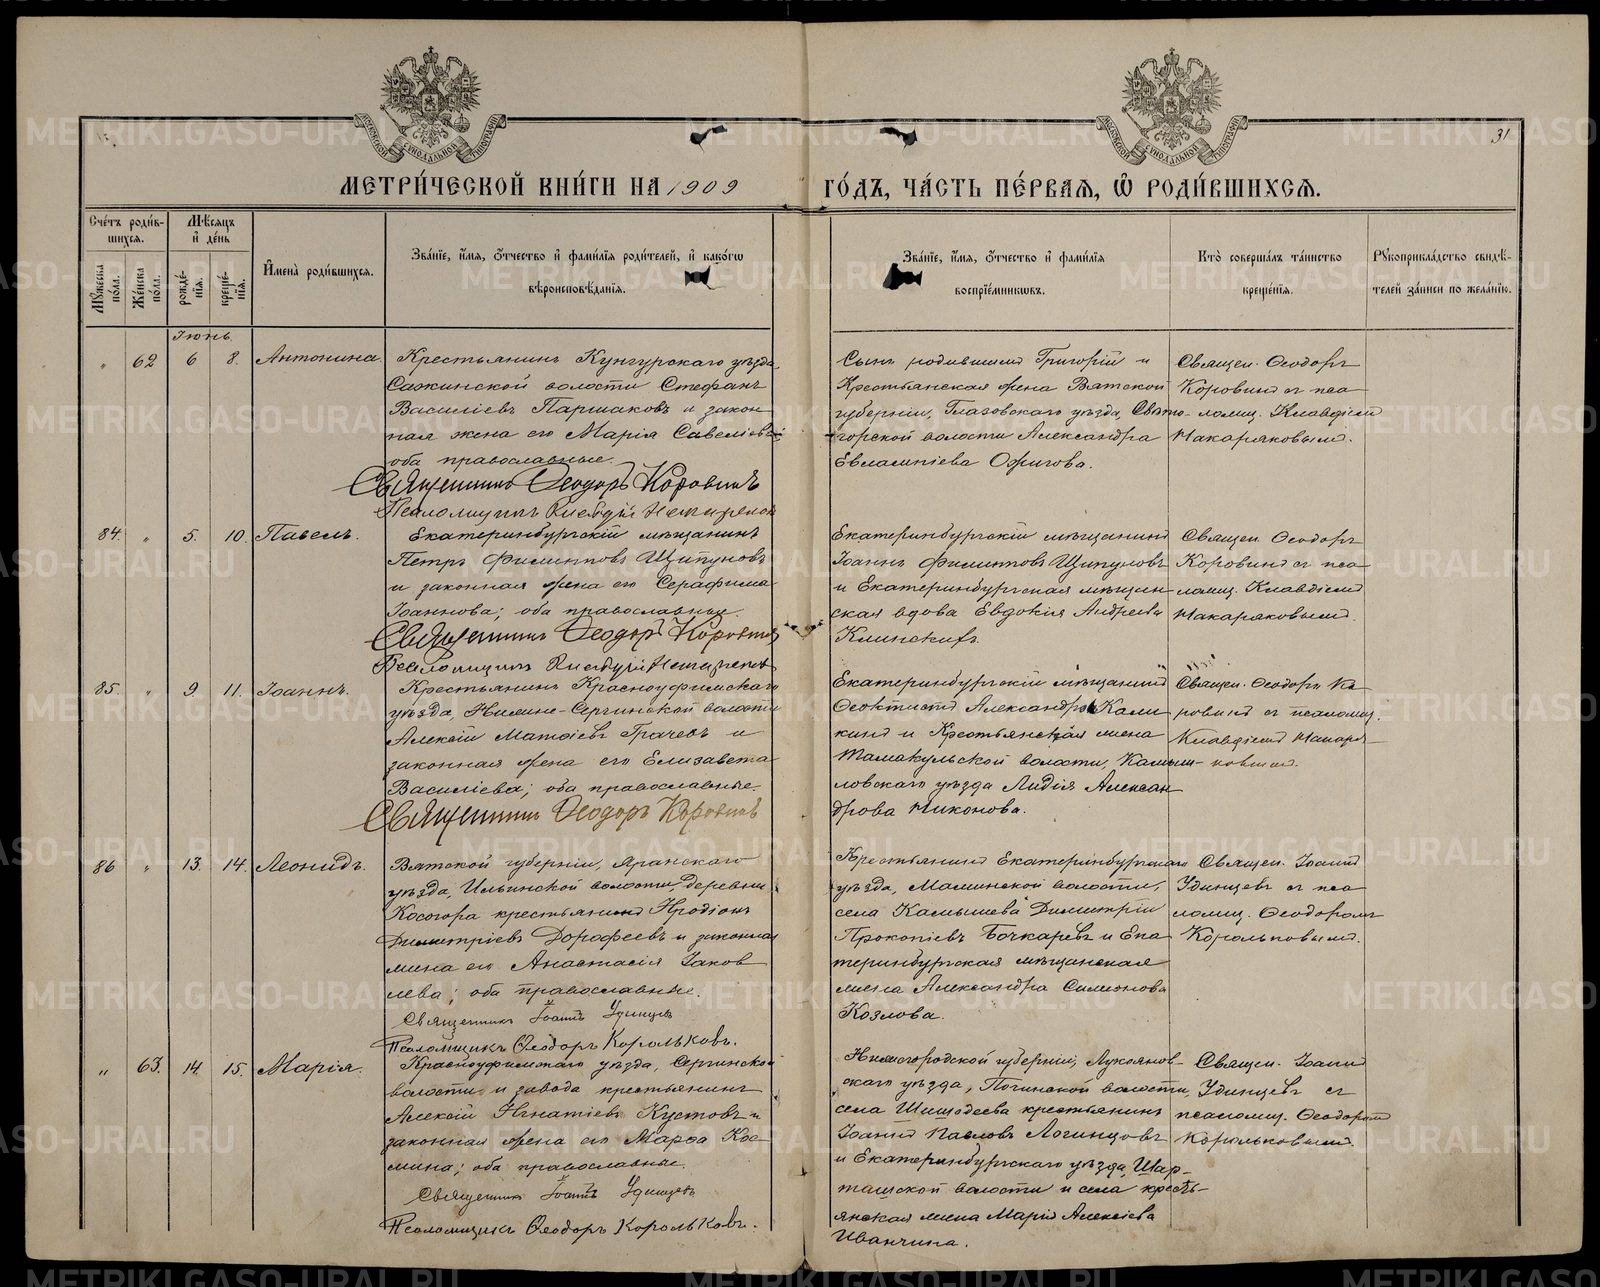 31
МЕТРИ́ЧЕСКОЙ КНИ́ГИ НА 1909 ГО́ДЪ, ЧА́СТЬ ПЕ́РВАЯ, Ѿ РОДИ́ВШИХСЯ.
Сче́тъ роди́в-
шихся.
Мѣ́сяцъ
и҆ де́нь
Мꙋ́жеска
по́ла.
Же́нска
по́ла.
рожде́-
нїя.
креще́-
нїя.
И҆мена̀ роди́вшихся.
Зва́нїе, и҆́мя, ѻ҆́тчество и҆ фами́лїя роди́телей, и҆ како́гѡ
вѣроисповѣ́данїя.
Зва́нїе, и҆́мя, ѻ҆́тчество и҆ фами́лїя
воспрїе́мникѡвъ.
Кто̀ соверша́лъ та́инство
креще́нїя.
Рꙋкоприкла́дство свидѣ́-
телей за́писи по жела́нїю.
Іюнь.
„ 62 6 8. Антонина.
Крестьянинъ Кунгурскаго уѣзда,
Сажинской волости Стефанъ
Василіевъ Паршаковъ и закон
ная жена его Марія Савеліева
оба православные.
Священникъ Ѳеодоръ Коровинъ
Псаломщикъ
Сынъ родившаго Григорій и
Крестьянская жена Вятской
губерніи, Глазовскаго уѣзда, Свято-
горской волости Александра
Евлампіева Ожигова.
Священ. Ѳеодоръ
Коровинъ съ пса
ломщ. Клавдіемъ
Макаряковымъ.
84. „ 5. 10. Павелъ.
Екатеринбургскій мѣщанинъ
Петръ Филипповъ Щипуновъ
и законная жена его Серафима
Іоаннова; оба православные.
Священникъ Ѳеодоръ Коровинъ
Псаломщикъ
Екатеринбургскій мѣщанинъ
Іоаннъ Филипповъ Щипуновъ
и Екатеринбургская мѣщан
ская вдова Евдокія Андреева
Клинскихъ.
Священ. Ѳеодоръ
Коровинъ съ пса
ломщ. Клавдіемъ
Макаряковымъ.
85. „ 9. 11. Іоаннъ.
Крестьянинъ Красноуфимскаго
уѣзда, Нижне-Сергинской волости
Алексій Матѳіевъ Грачевъ и
законная жена его Елизавета
Василіева; оба православные.
Священникъ Ѳеодоръ Коровинъ
Екатеринбургскій мѣщанинъ
Ѳеоктистъ Александровъ Кали
кинъ и Крестьянская жена
Тамакульской волости, Камыш-
ловскаго уѣзда Лидія Алексан
дрова Никонова.
Священ. Ѳеодоръ Ко
ровинъ съ псаломщ.
Клавдіемъ Макаря
ковымъ.
86 „ 13. 14. Леонидъ.
Вятской губерніи, Яранскаго
уѣзда, Ильинской волости, деревни
Косогора крестьянинъ Иродіонъ
Димитріевъ Дорофеевъ и законная
жена его Анастасія Іаков
лева; оба православные.
Священникъ Іоаннъ Удинцевъ
Псаломщикъ Ѳеодоръ Корольковъ.
Крестьянинъ Екатеринбургскаго
уѣзда, Маминской волости,
села Камышева Димитрій
Прокопіевъ Бочкаревъ и Ека
теринбургская мѣщанская
жена Александра Симеонова
Козлова.
Священ. Іоаннъ
Удинцевъ съ пса
ломщ. Ѳеодоромъ
Корольковымъ.
„ 63. 14. 15. Марія.
Красноуфимскаго уѣзда, Сергинской
волости и завода крестьянинъ
Алексій Игнатіевъ Кустовъ и
законная жена его Марѳа Кос
мина; оба православные.
Священникъ Іоаннъ Удинцевъ
Псаломщикъ Ѳеодоръ Корольковъ.
Нижегородской губерніи, Лукоянов-
скаго уѣзда, Починской волости,
села Шишадеева крестьянинъ
Іоаннъ Павловъ Логинцовъ
и Екатеринбургскаго уѣзда, Шар-
ташской волости и села кресть-
янская жена Марія Алексіева
Иванчина.
Священ. Іоаннъ
Удинцевъ съ
псаломщ. Ѳеодоромъ
Корольковымъ.
METRIKI.GASO-URAL.RU